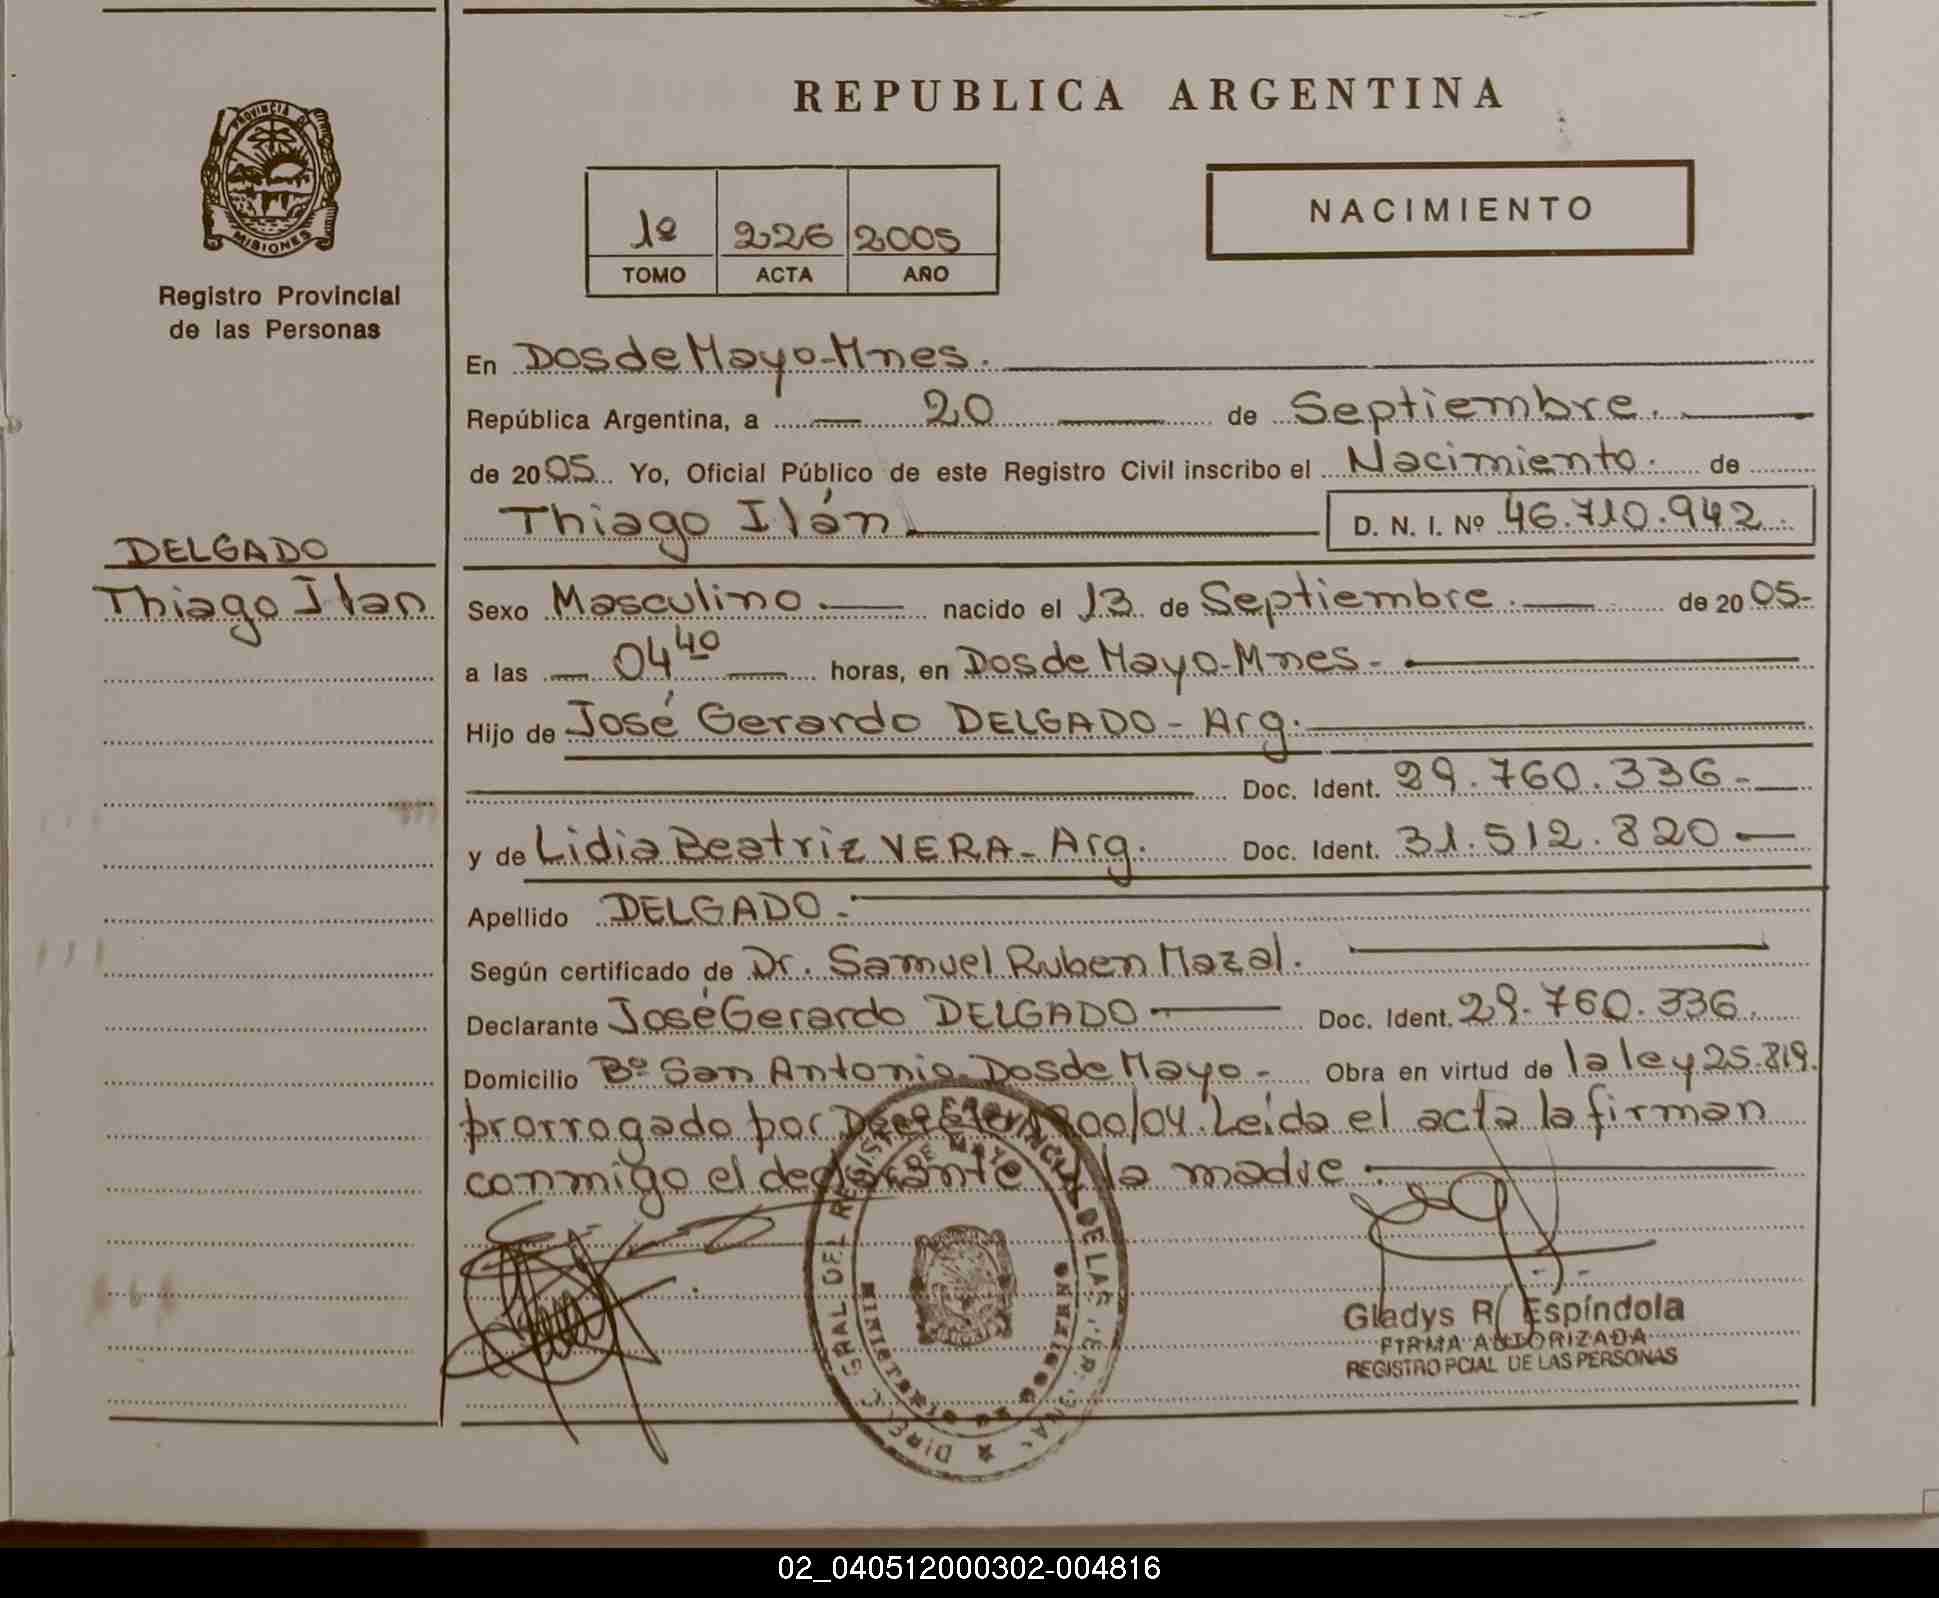 REPUBLICA ARGENTINA
PROVINCIA DE
MISIONES
Registro Provincial
de las Personas
1º 226 2005
TOMO ACTA AÑO
NACIMIENTO
En Dos de Mayo-Mnes.
República Argentina, a 20 de Septiembre.
de 2005 Yo, Oficial Público de este Registro Civil inscribo el Nacimiento. de
Thiago Ilán D. N. I. Nº 46.710.942.
DELGADO
Thiago Ilan
Sexo Masculino. nacido el 13 de Septiembre. de 2005-
a las 04 40 horas, en Dos de Mayo-Mnes-
Hijo de José Gerardo DELGADO - Arg.
Doc. Ident. 29.760.336-
y de Lidia Beatriz VERA - Arg. Doc. Ident. 31.512.820
Apellido DELGADO-
Según certificado de Dr. Samuel Ruben Mazal.
Declarante José Gerardo DELGADO Doc. Ident. 29.760.336.
Domicilio Bº San Antonio-Dos de Mayo- Obra en virtud de la ley 25.819.
prorrogado por 00/04. Leída el acta la firman
conmigo el declarante y la madre.
MINISTERIO DE GOBIERNO
Gladys R. Espíndola
FIRMA AUTORIZADA
REGISTRO PCIAL DE LAS PERSONAS
02_040512000302-004816